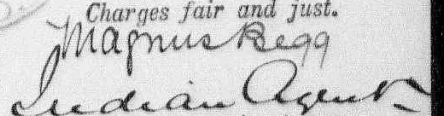 Charges fair and just.
Magnus Begg
Indian Agent